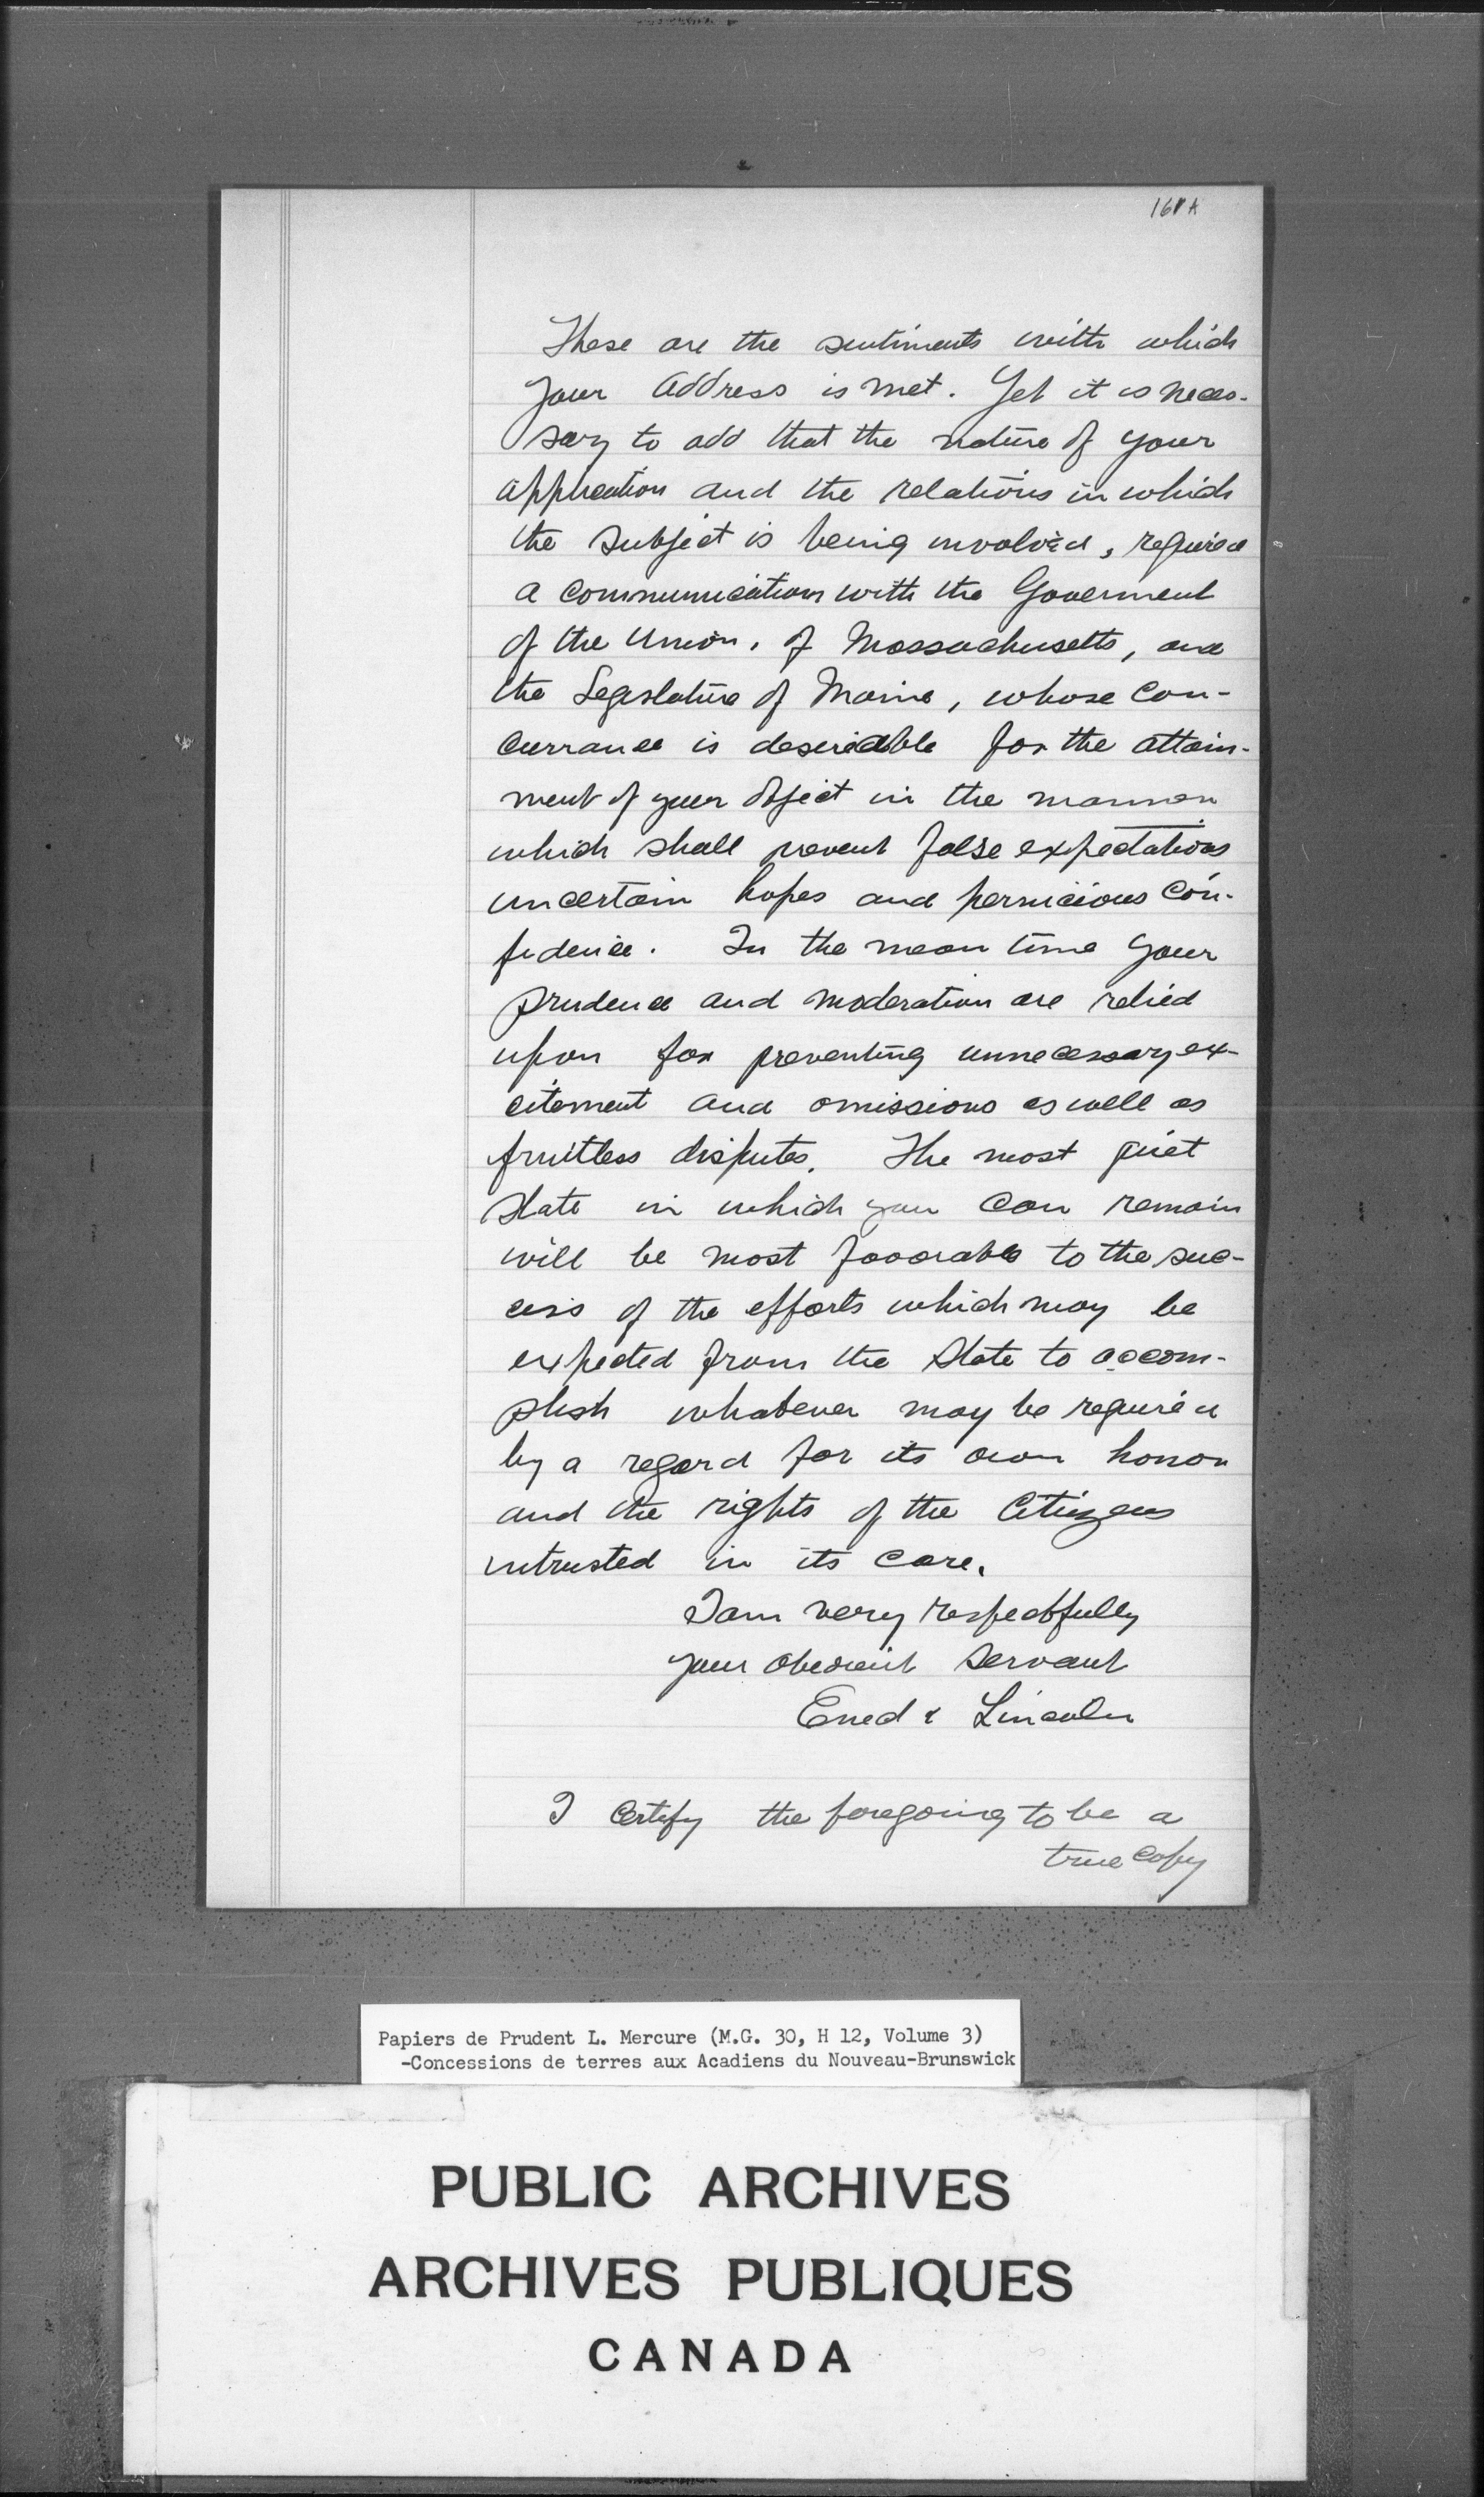 These are the sentiments with which
your address is met. Yet it is neces-
sary to add that the nature of your
application and the relations in which
the subject is being involved, required
a communication with the Goverment
of the Union, of Massachusetts, and
the Legislature of Maine, whose con-
currance is desirable for the attain-
ment of your object in the manner
which shall prevent false expectations
uncertain hopes and pernicious con-
fidence. In the mean time your
prudence and moderation are relied
upon for preventing unnecessary ex-
citement and omissions as well as
fruitless disputes. The most quiet
state in which you can remain
will be most favorable to the suc-
cess of the efforts which may be
expected from the State to accom-
plish whatever may be required
by a regard for its own honor
and the rights of the Citizens
intrusted in its care.
I am very respectfully
your obedient servant
Lincoln
I certify the foregoing to be a
true copy
Papiers de Prudent L. Mercure (M.G. 30, H 12, Volume 3)
-Concessions de terres aux Acadiens du Nouveau-Brunswick
PUBLIC ARCHIVES
ARCHIVES PUBLIQUES
CANADA